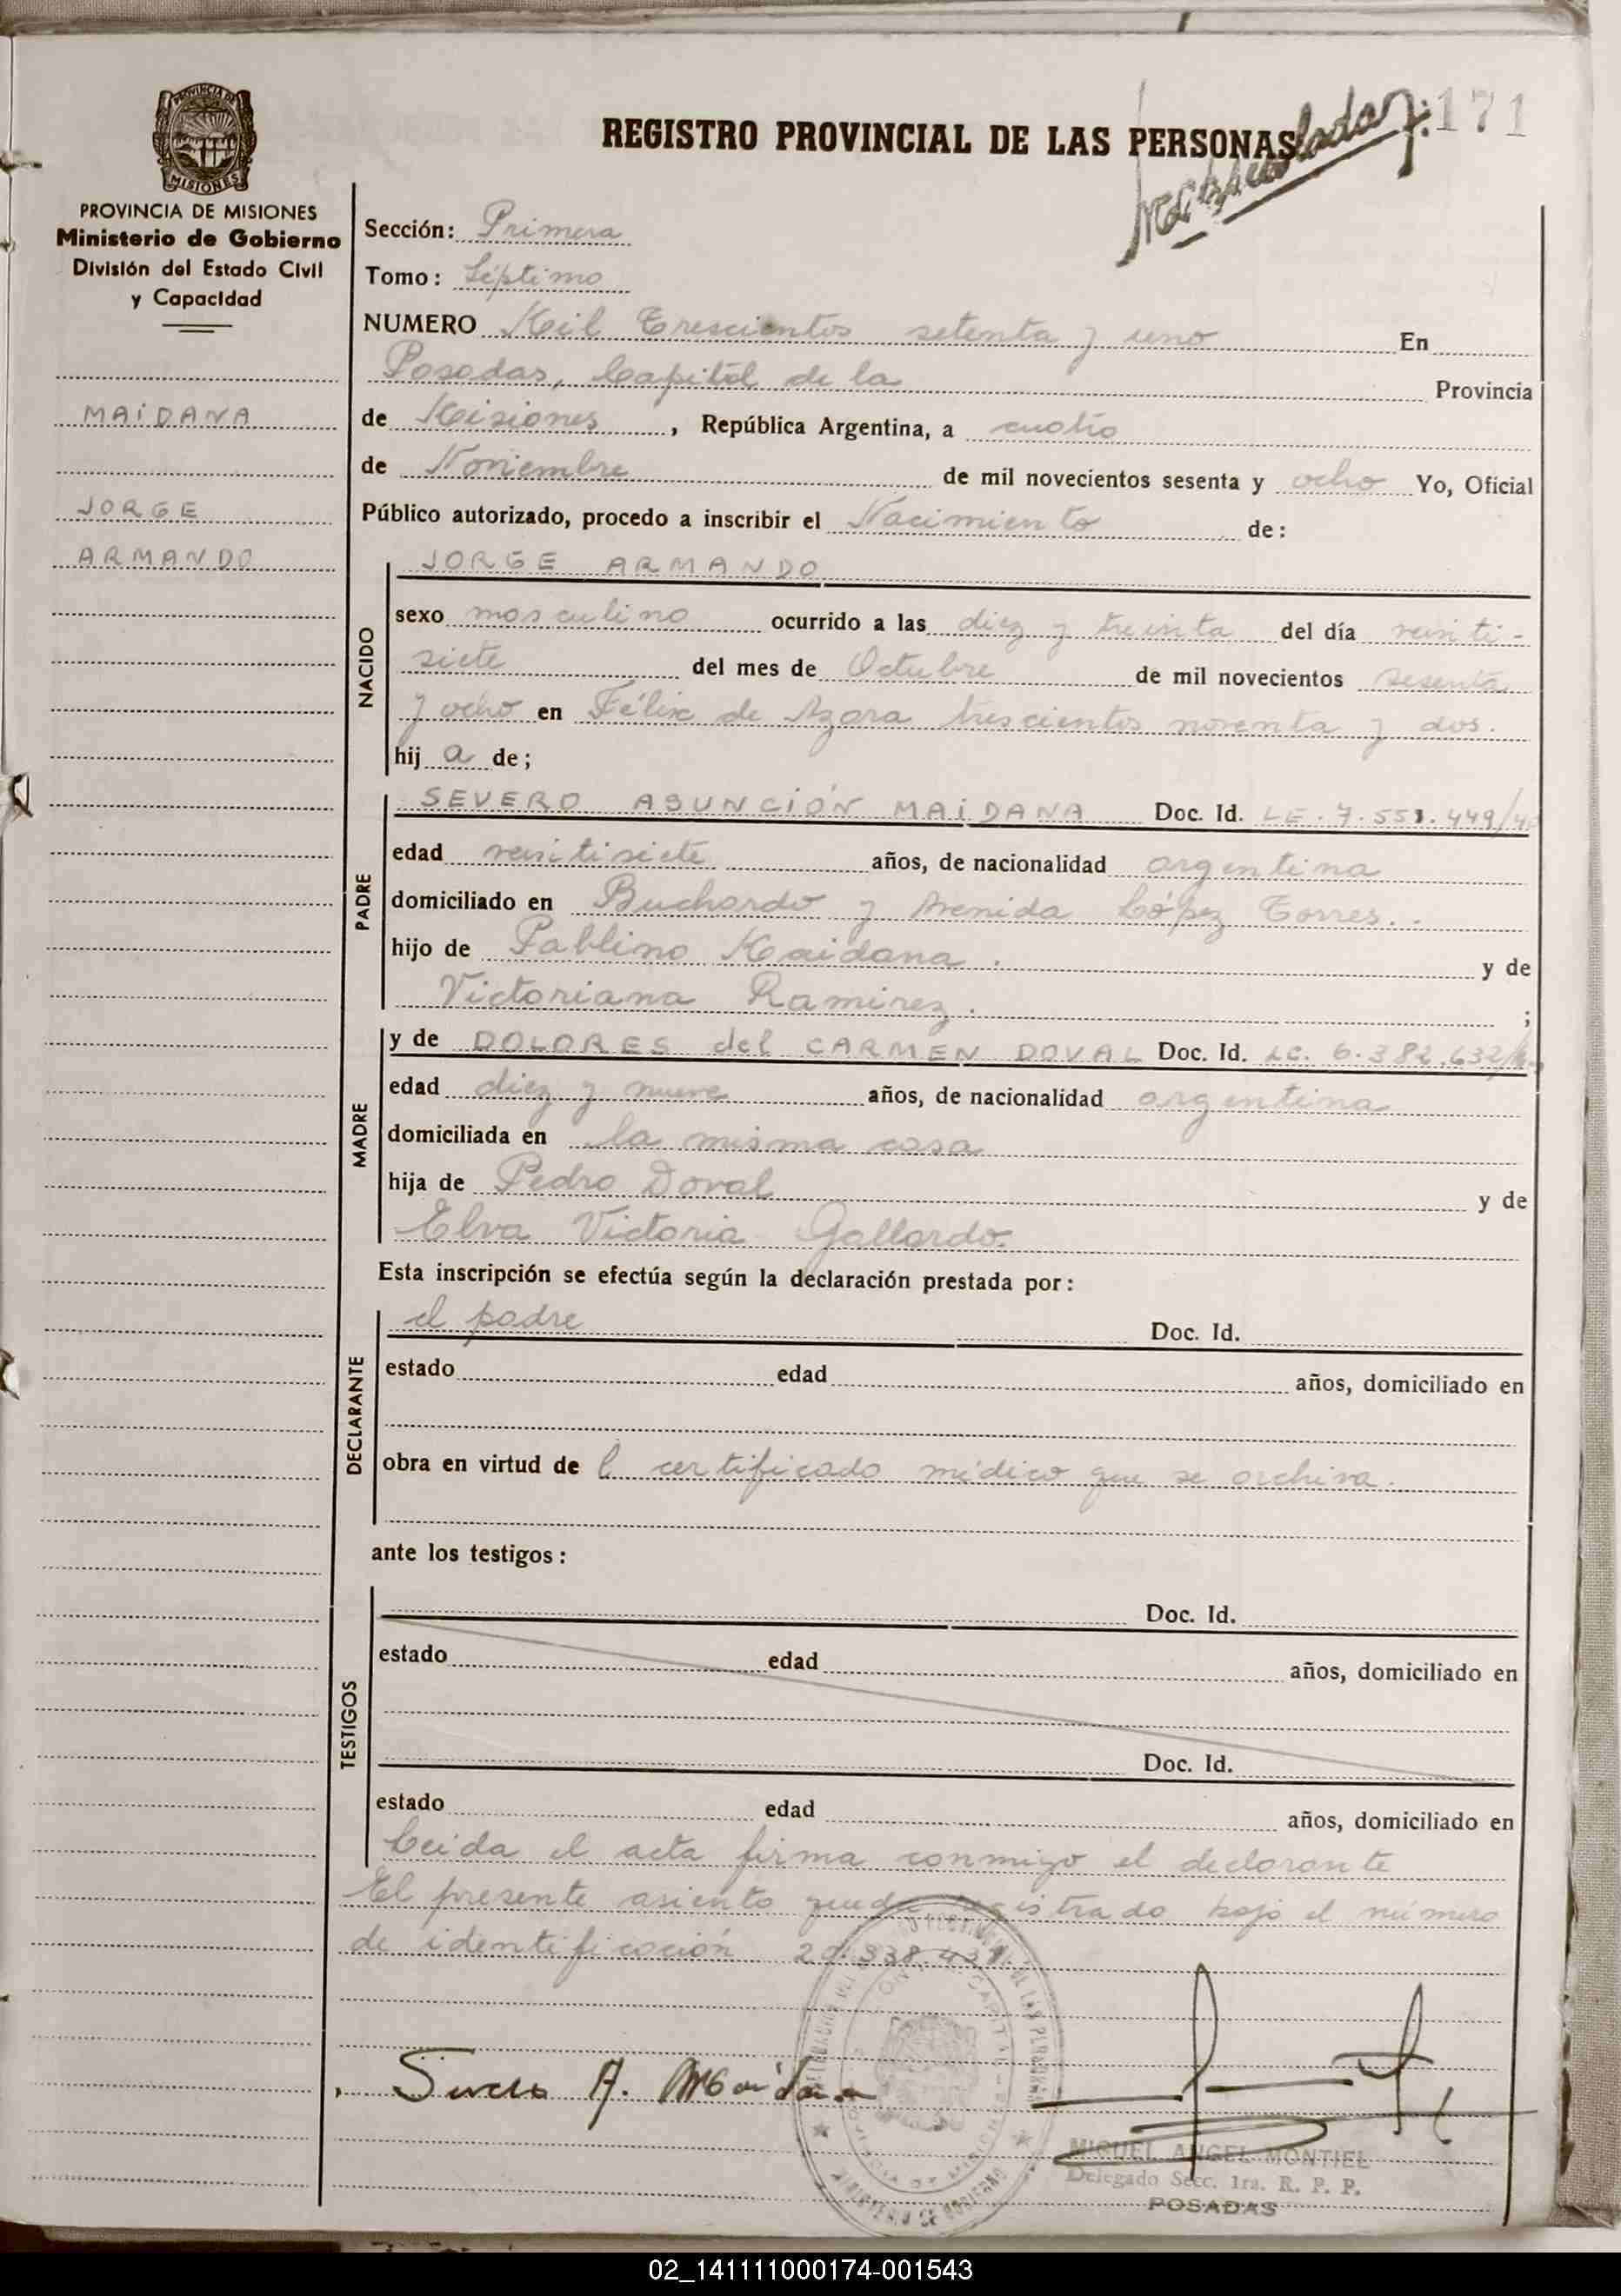 PROVINCIA DE
MISIONES
REGISTRO PROVINCIAL DE LAS PERSONAS
171
PROVINCIA DE MISIONES
Ministerio de Gobierno
División del Estado Civil
y Capacidad
MAiDANA
JORGE
ARMANDO
Sección: Primera
Tomo: Séptimo
NUMERO Mil Trescientos setenta y uno En
Posadas, Capital de la Provincia
de Misiones, República Argentina, a cuatro
de Noviembre de mil novecientos sesenta y ocho Yo, Oficial
Público autorizado, procedo a inscribir el Nacimiento de:
NACIDO
JORGE ARMANDO
sexo masculino ocurrido a las diez y treinta del día veinti-
siete del mes de Octubre de mil novecientos sesenta
y ocho en Félix de Azara trescientos noventa y dos.
hij a de;
PADRE
SEVERO ASUNCIÓN MAiDANA Doc. Id. LE. 7.551.449/
edad veintisiete años, de nacionalidad argentina
domiciliado en Buchardo y Avenida López Torres..
hijo de Pablino Maidana. y de
Victoriana Ramirez. ;
MADRE
y de DOLORES del CARMEN DOVAL Doc. Id. LC. 6.382.632/
edad diez y nueve años, de nacionalidad argentina
domiciliada en la misma casa
hija de Pedro Doval y de
Elva Victoria Gallardo.
Esta inscripción se efectúa según la declaración prestada por:
DECLARANTE
el padre Doc. Id.
estado edad años, domiciliado en
obra en virtud de l certificado médico que se archiva.
ante los testigos:
TESTIGOS
Doc. Id.
estado edad años, domiciliado en
Doc. Id.
estado edad años, domiciliado en
Leida el acta firma conmigo el declarante
El presente asiento queda registrado bajo el número
de identificación 20.338.431
Severo A. Maidana
MIGUEL ANGEL MONTIEL
Delegado Secc. 1ra. R. P. P.
POSADAS
02_141111000174-001543